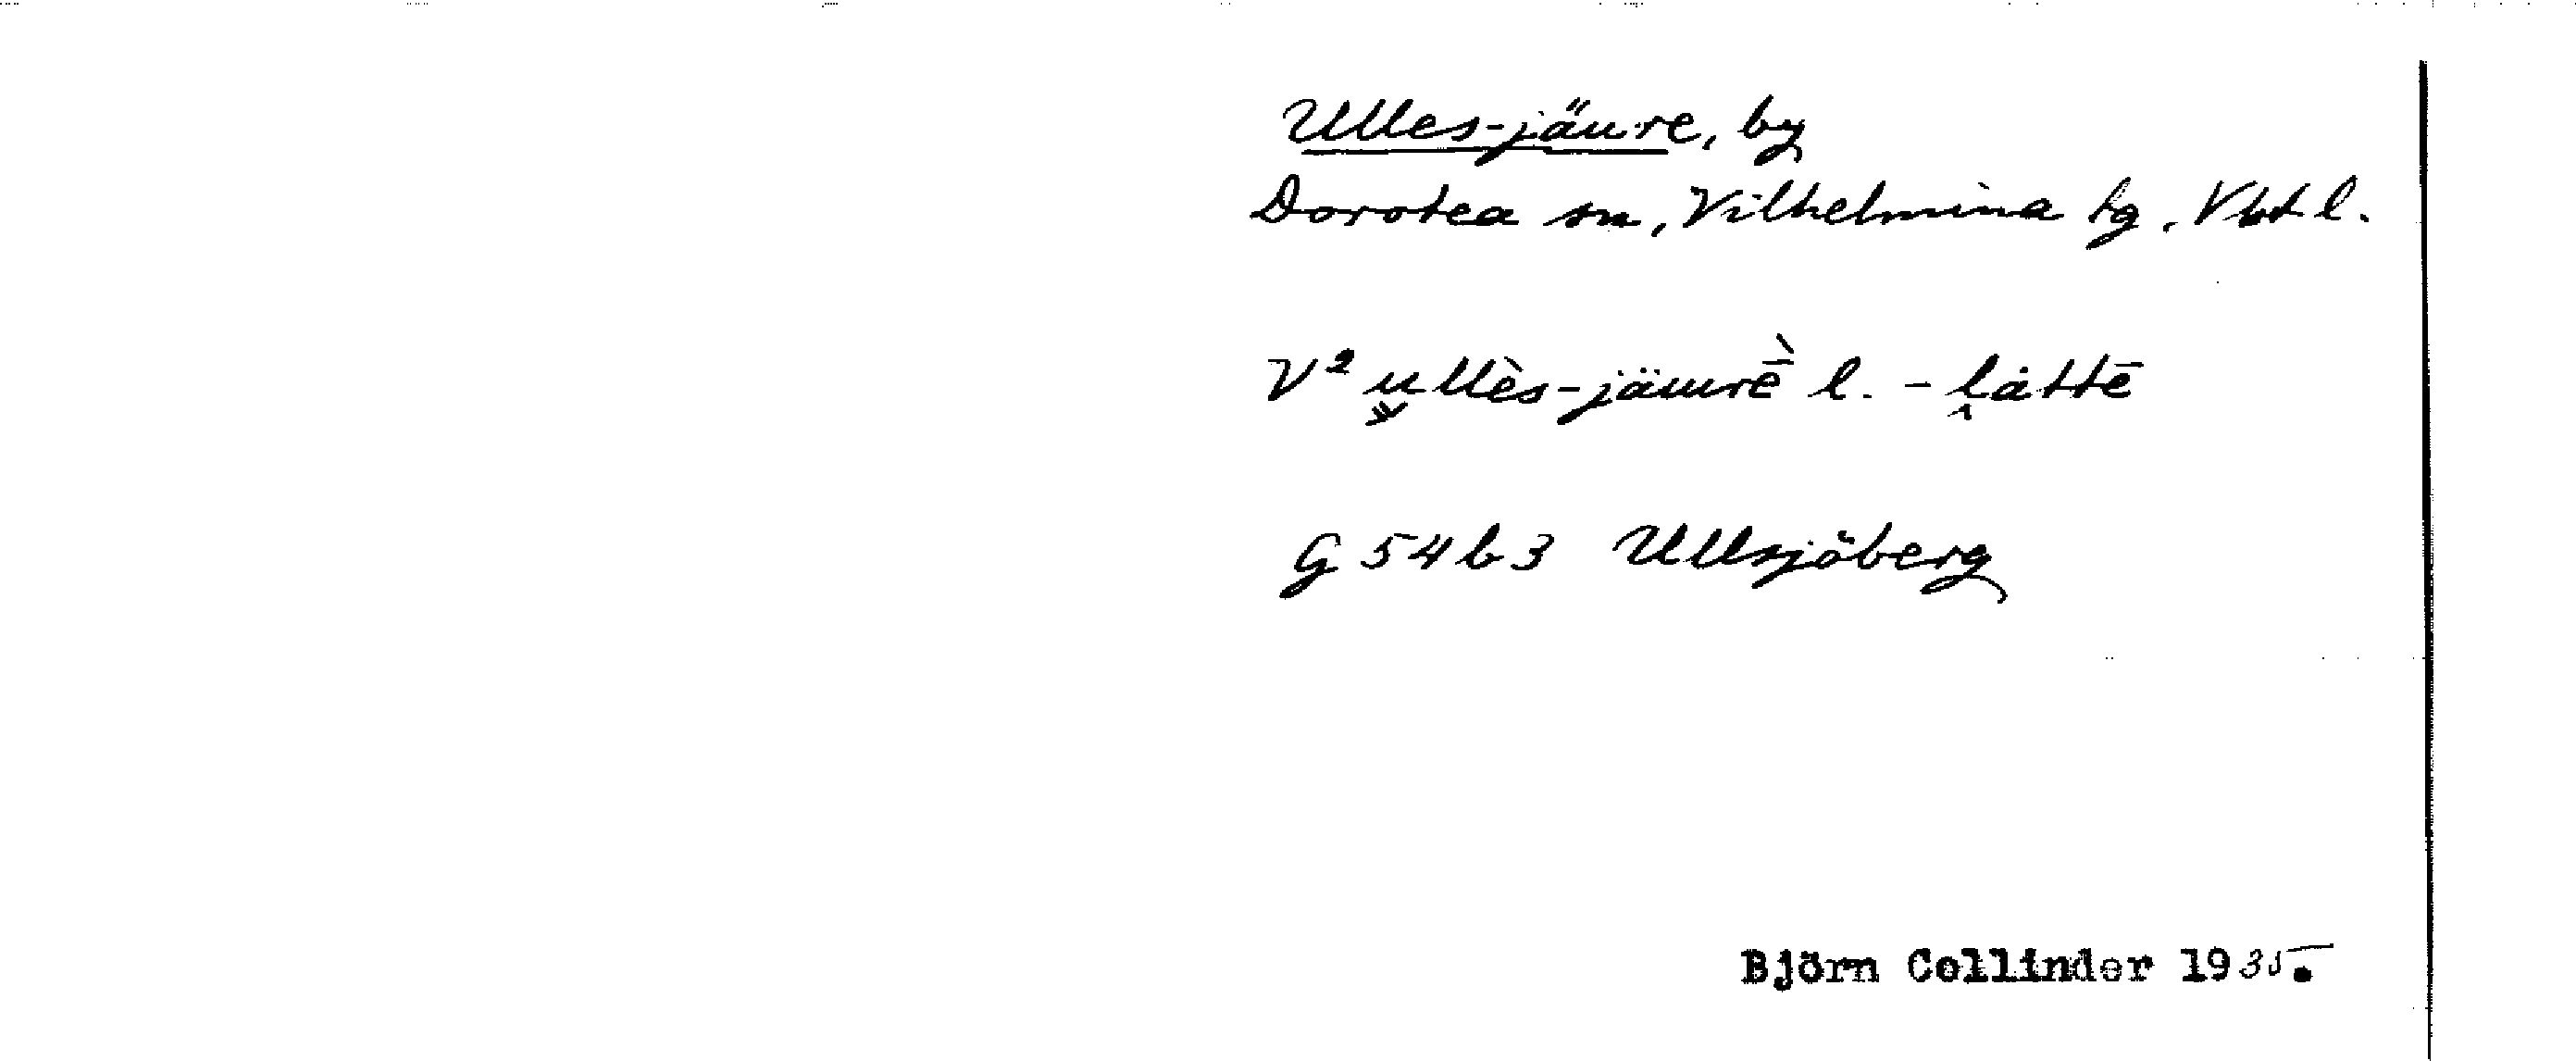 Ulles-jäure, by
Dorotea sn, Vilhelmina tg. Vbtl.
V² ullès-jäurḕ l. -låttē
G 54 b 3 Ullsjöberg
Björn Collinder 1935.